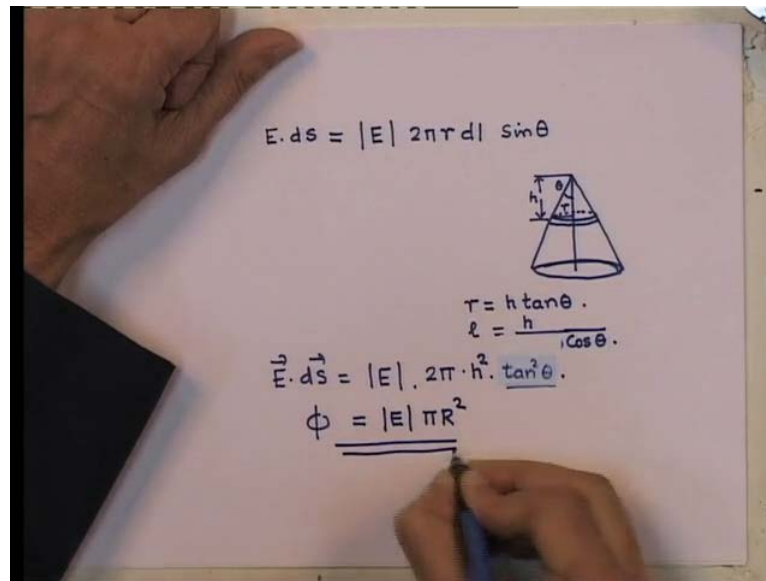 E. ds = |E| 2πr dl sinθ
θ
h
r
r = h tanθ .
l = h / cosθ .
E⃗. ds⃗ = |E| . 2π · h². tan²θ .
φ = |E| πR²